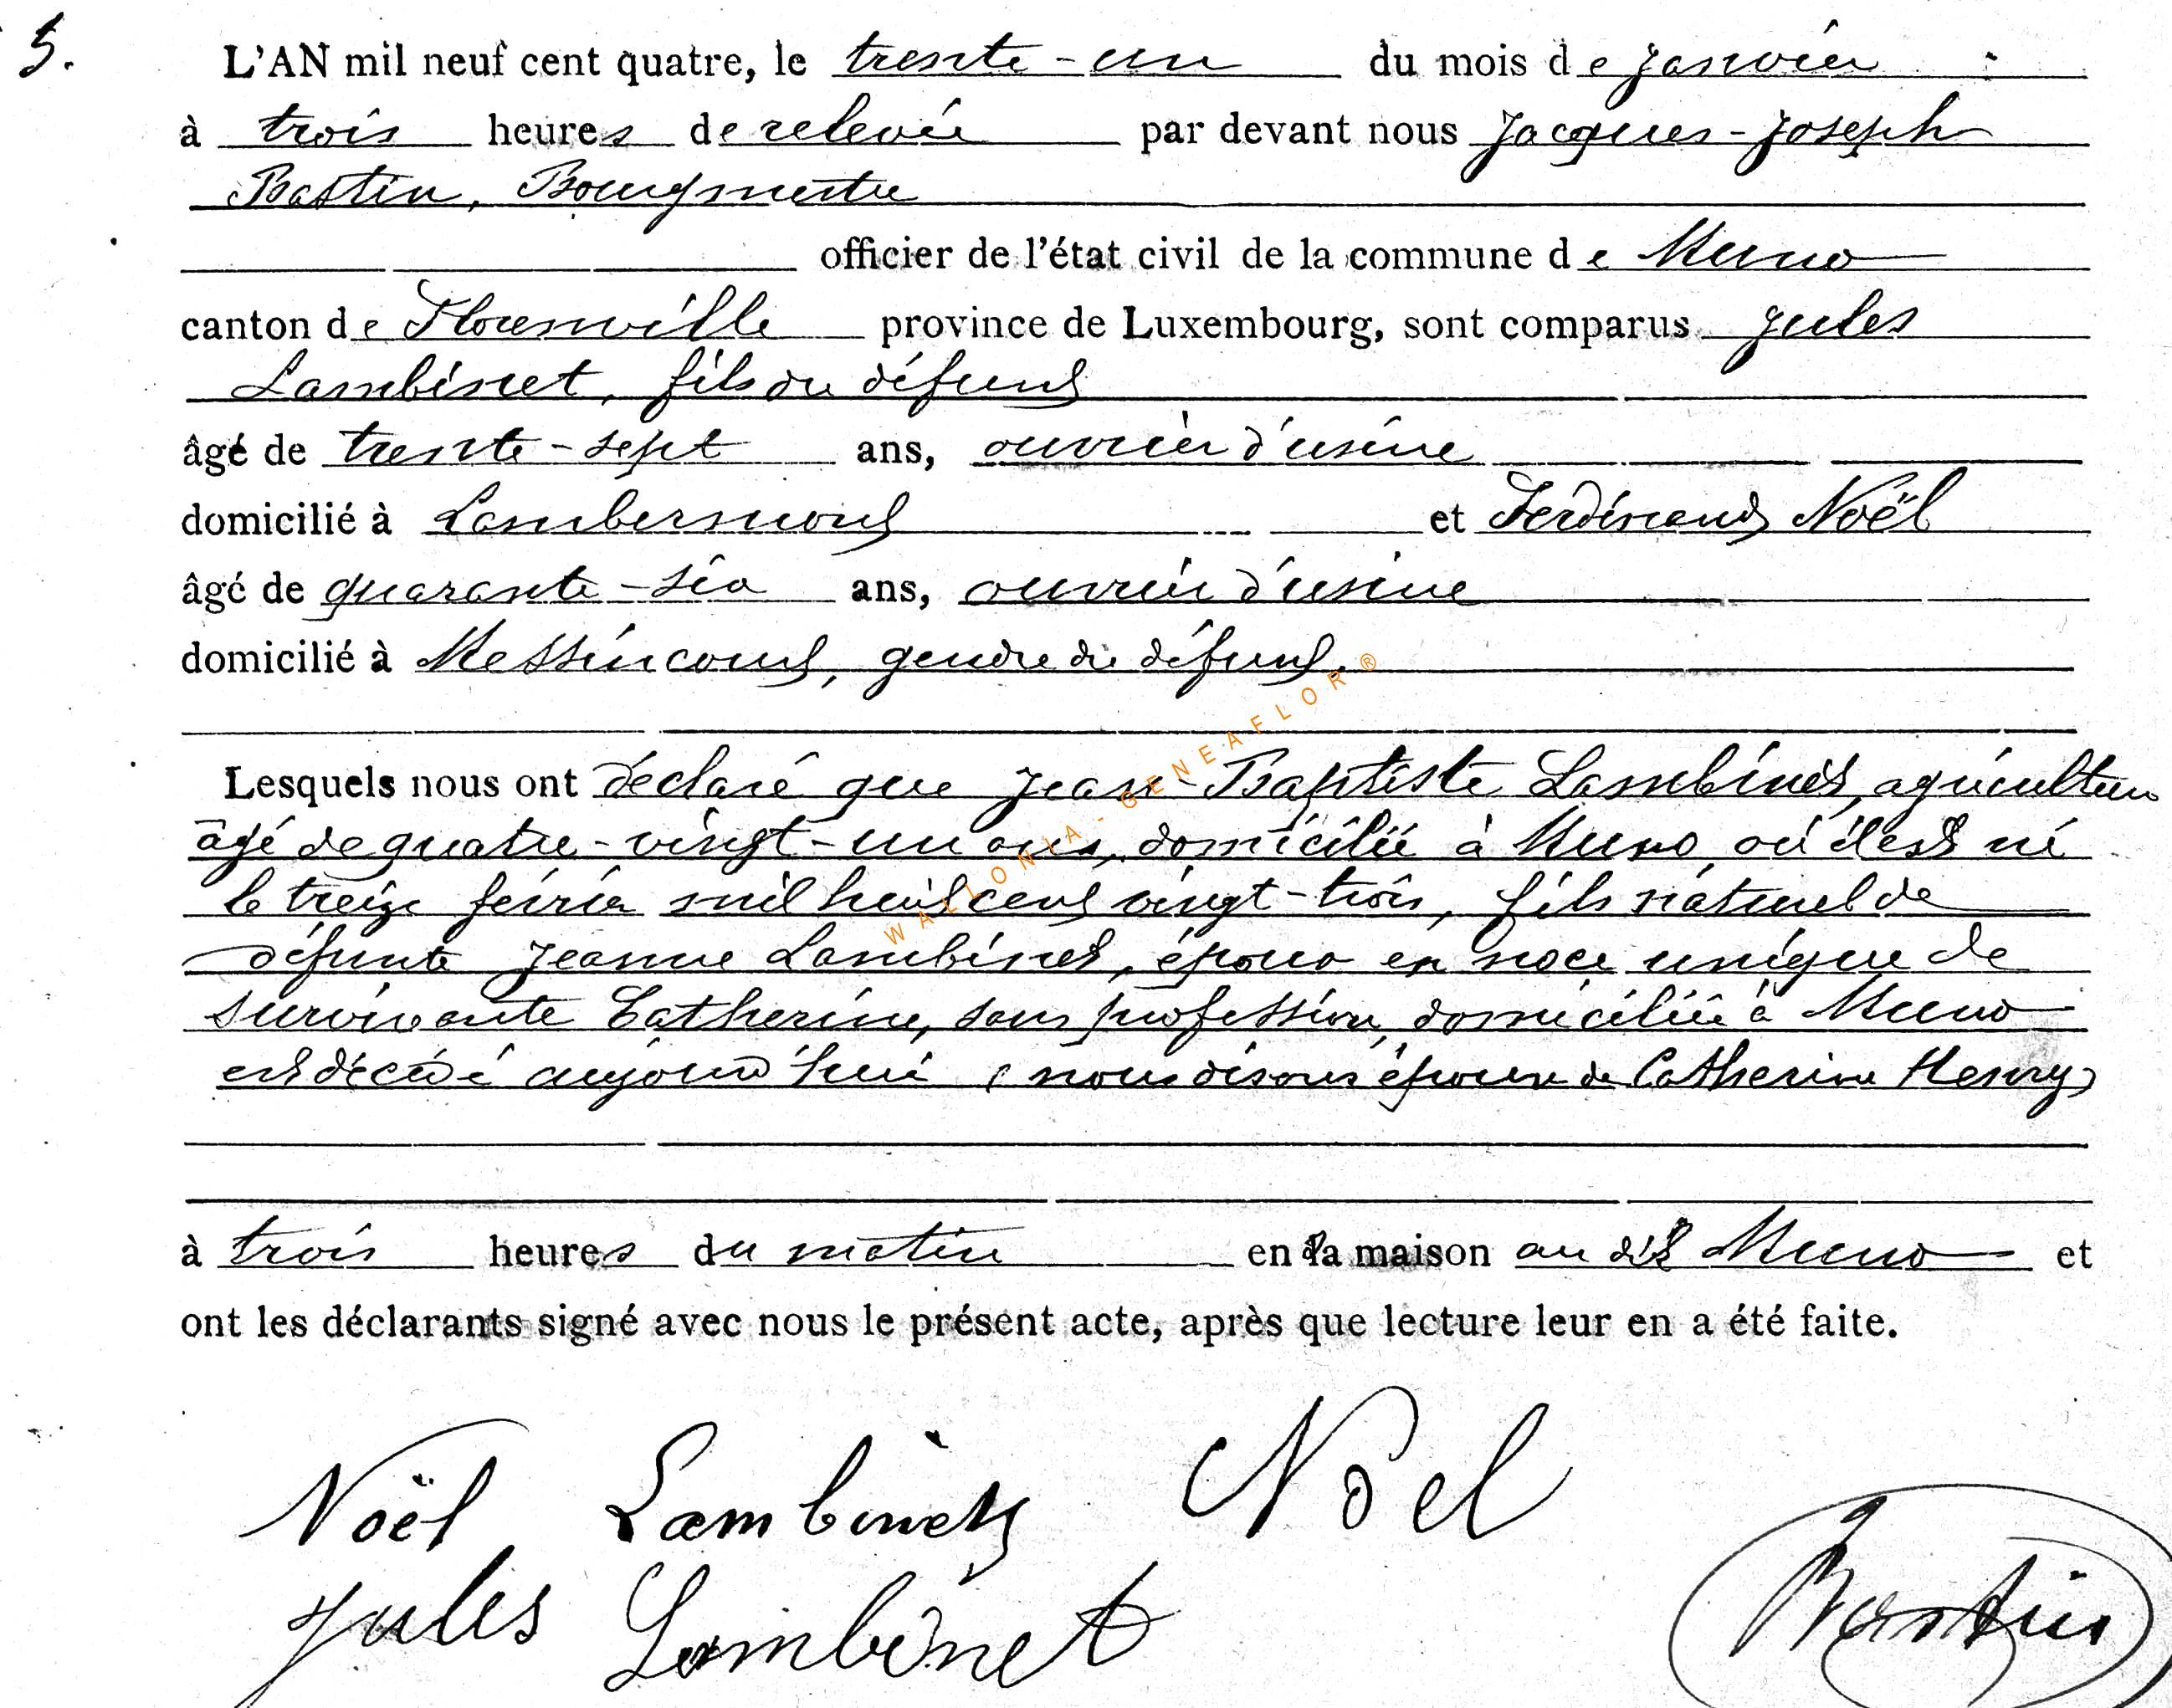 5.
L'AN mil neuf cent quatre, le trente-un du mois de janvier :
à trois heures de relevée par devant nous Jacques-Joseph
Bastin, Bourgmestre
officier de l'état civil de la commune de Muno
canton de Florenville province de Luxembourg, sont comparus Jules
Lambinet, fils du défunt
âgé de trente-sept ans, ouvrier d'usine
domicilié à Lambermont et Ferdinand Noël
âgé de quarante-six ans, ouvrier d'usine
domicilié à Messincourt, gendre du défunt.
Lesquels nous ont déclaré que Jean-Baptiste Lambinet, agriculteur
âgé de quatre-vingt-un ans, domicilié à Muno, où il est né
le treize février mil huit cent vingt-trois, fils naturel de
défunte Jeanne Lambinet, époux en noce unique de
survivante Catherine, sans profession, domiciliée à Muno
est décédé aujourd'hui (nous disons époux de Catherine Henry)
à trois heures du matin en sa maison au dit Muno et
ont les déclarants signé avec nous le présent acte, après que lecture leur en a été faite.
WALLONIA-GENEAFLOR®
Noël Lambinet Noel
Jules Lambinet
Bastin